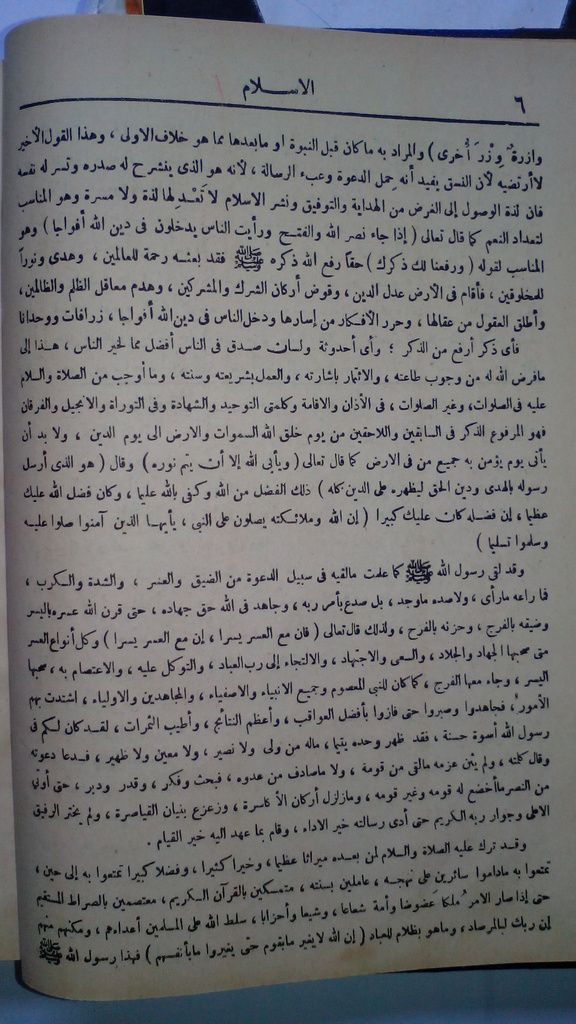 ٦
الاسلام
وازرة وِزْرَ أُخرى ) والمراد به ما كان قبل النبوة او مابعدها مما هو خلاف الاولى ، وهذا القول الأخير
لاأرتضيه لأن النسق يفيد أنه حمل الدعوة وعبء الرسالة ، لأنه هو الذى ينشرح له صدره وتسر له نفسه
فان لذة الوصول إلى الغرض من الهداية والتوفيق ونشر الاسلام لا تَعْدِلها لذة ولا مسرة وهو المناسب
لتعداد النعم كما قال تعالى ( إذا جاء نصر الله والفتح ورأيت الناس يدخلون فى دين الله أفواجا ) وهو
المناسب لقوله ( ورفعنا لك ذكرك ) حقاً رفع الله ذكره ﷺ فقد بعثه رحمة للعالمين ، وهدى ونوراً
للمخلوقين ، فأقام فى الأرض عدل الدين ، وقوض أركان الشرك والمشركين ، وهدم معاقل الظلم والظالمين،
وأطلق العقول من عقالها ، وحرر الأفكار من إسارها ودخل الناس فى دين الله أفواجا ، زرافات ووحدانا
فأى ذكر أرفع من الذكر ؛ وأى أحدوثة ولسان صدق فى الناس أفضل مما لخير الناس ، هذا إلى
مافرض الله له من وجوب طاعته ، والائتمار باشارته ، والعمل بشريعته وسنته ، وما أوجب من الصلاة والسلام
عليه فى الصلوات، وغير الصلوات ، فى الأذان والاقامة وكلمتى التوحيد والشهادة وفى التوراة والانجيل والفرقان
فهو المرفوع الذكر فى السابقين واللاحقين من يوم خلق الله السموات والارض الى يوم الدين ، ولا بد أن
يأتى يوم يؤمن به جميع من فى الارض كما قال تعالى ( ويأبى الله إلا أن يتم نوره ) وقال ( هو الذى أرسل
رسوله بالهدى ودين الحق ليظهره على الدين كله ) ذلك الفضل من الله وكفى بالله عليما ، وكان فضل الله عليك
عظيما ، إن فضله كان عليك كبيرا ( إن الله وملائكته يصلون على النبى ، يأيها الذين آمنوا صلوا عليه
وسلموا تسليما )
وقد لقى رسول الله ﷺ كما علمت مالقيه فى سبيل الدعوة من الضيق والعسر ، والشدة والكرب ،
فما راعه مارأى ، ولاصده ماوجد ، بل صدع بأمر ربه ، وجاهد فى الله حق جهاده ، حتى قرن الله عسره باليسر
وضيقه بالفرج ، وحزنه بالفرح ، ولذلك قال تعالى ( فان مع العسر يسرا ، إن مع العسر يسرا ) وكل أنواع العسر
متى صحبها الجهاد والجلاد ، والسعى والاجتهاد ، والالتجاء إلى رب العباد ، والتوكل عليه ، والاعتصام به ، صحبها
اليسر ، وجاء معها الفرج ، كما كان للنبى المعصوم وجميع الانبياء والاصفياء ، والمجاهدين والاولياء ، اشتدت بهم
الأمور ، فجاهدوا وصبروا حتى فازوا بأفضل العواقب ، وأعظم النتائج ، وأطيب الثمرات ، لقد كان لكم فى
رسول الله أسوة حسنة ، فقد ظهر وحده يتيما ، ماله من ولى ولا نصير ، ولا معين ولا ظهير ، فدعا دعوته
وقال كلمته ، ولم يثن عزمه مالقى من قومه ، ولا ماصادف من عدوه ، فبحث وفكر ، وقدر ودبر ، حتى أوتى
من النصر ماأخضع له قومه وغير قومه ، ومازلزل أركان الأكاسرة ، وزعزع بنيان القياصرة ، ولم يختر الرفيق
الاعلى وجوار ربه الكريم حتى أدى رسالته خير الاداء ، وقام بما عهد اليه خير القيام .
وقد ترك عليه الصلاة والسلام لمن بعده ميراثا عظيما ، وخيرا كثيرا ، وفضلا كبيرا تمتعوا به إلى حين ،
تمتعوا به ماداموا سائرين على نهجه ، عاملين بسنته ، متمسكين بالقرآن الكريم ، معتصمين بالصراط المستقيم
حتى إذا صار الامر مُلكا عضوضا وأمة شعاعا ، وشيعا وأحزابا ، سلط الله على المسلمين أعداءهم ، ومكنهم منهم
إن ربك لبالمرصاد ، وماهو بظلام للعباد ( إن الله لايغير مابقوم حتى يغيروا مابأنفسهم ) فهذا رسول الله ﷺ